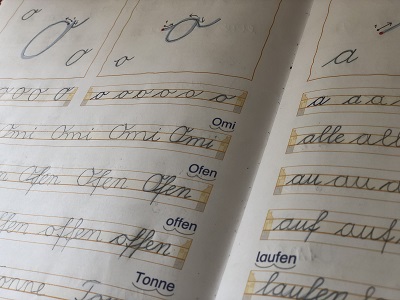 O o
o
a
o o o o
o o o o o o o
Omi
Omi Omi Omi Omi
Ofen
Ofen Ofen Ofen
offen
offen offen offen
Tonne
a a a
alle
au au
auf auf
laufen
laufen